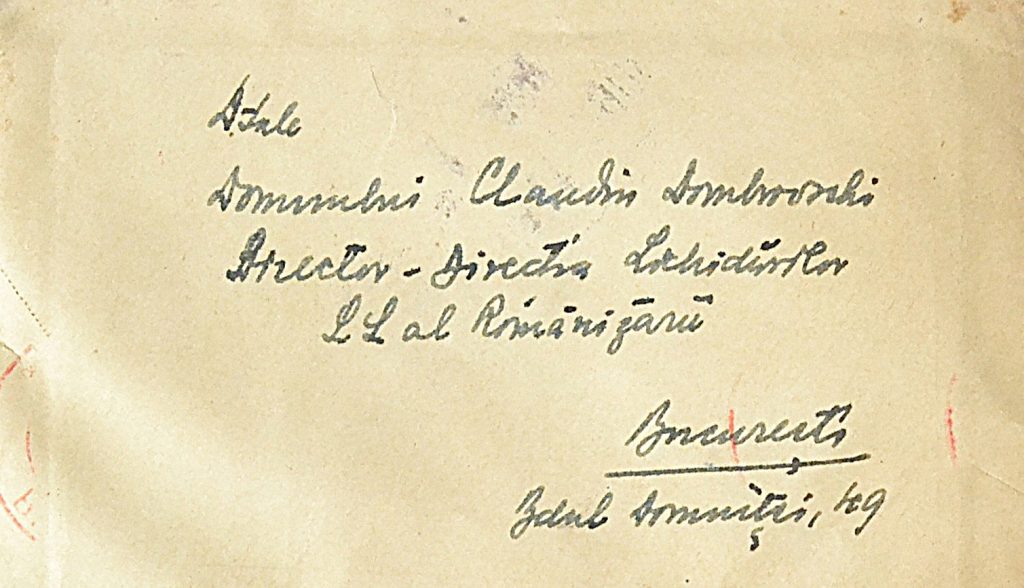 D-Sale
Domnului Claudiu Dombrovschi
Director - Directia Lichidărilor
al Românizării
București
Bdul Domniței, 49